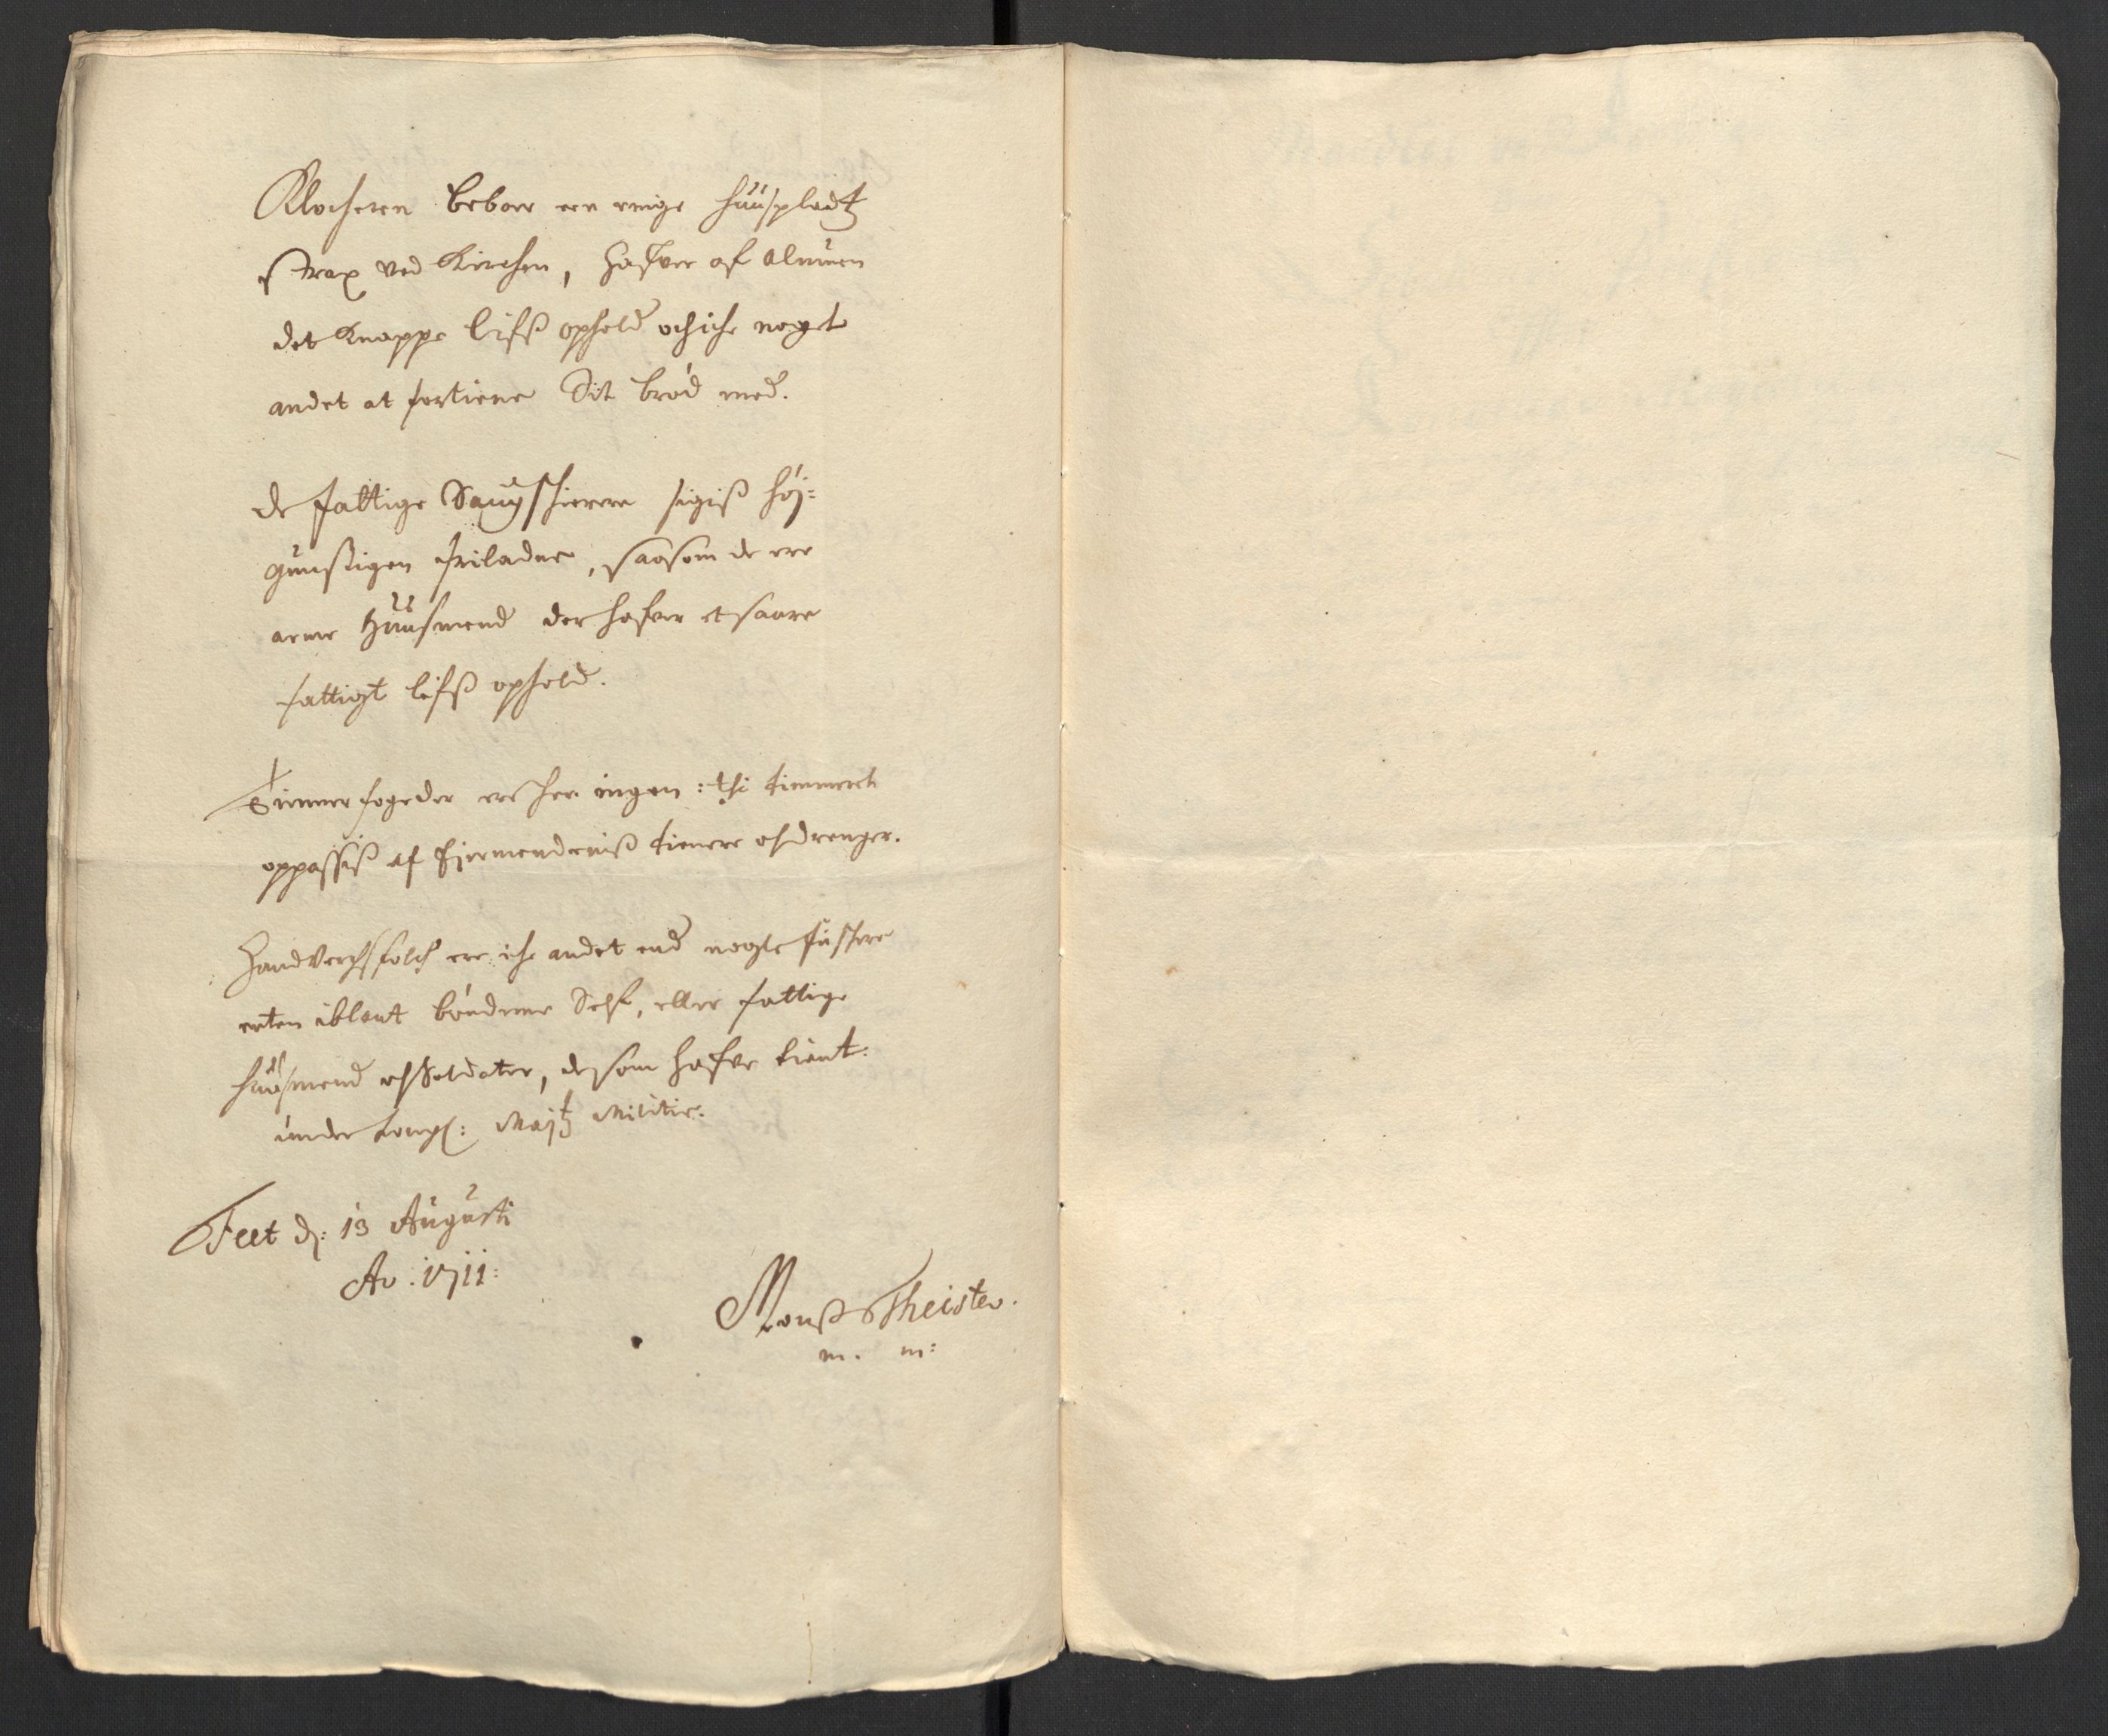 Klocheren beboer een ringe huuspladtz
strax ved Kirchen, hafver af Almuen
det knappe lifß ophold och iche noget
andet at fortiene Sit brød med.
de fattige Saugskierere sigiß høj=
gunstigen friladne, saasom de ere
arme Huusmend der hafver et saare
fattigt lifß ophold.
Timmer fogeder ere her ingen: thi timmeret
oppassiß af Ejermenderniß tienere och drenger.
Handverchsfolch ere iche andet end nogle fuskere
enten iblant bønderne Self, eller fattige
huusmend och Soldater, de som hafve tient
under kongl: Maj:tz Militie.
Feet d: 13 Augusti
Ao: 1711:
Monß Theiste.
m. m: